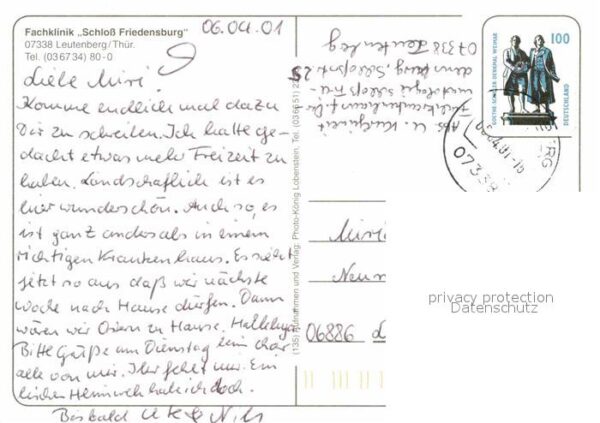 Fachklinik „Schloß Friedensburg"
07338 Leutenberg/Thür.
Tel. (03 67 34) 80-0
06.04.01
Liebe Miri!
Komme endlich mal dazu
Dir zu schreiben. Ich hatte ge-
dacht etwas mehr Freizeit zu
haben. Landschaftlich ist es
hier wunderschön. Auch so, es
ist ganz anders als in einem
richtigen Krankenhaus. Es sieht
jetzt so aus daß wir nächste
Woche nach Hause dürfen. Dann
wären wir Ostern zu Hause. Halleluja
Bitte Grüße am Dienstag beim Chor
alle von mir. Ihr fehlt mir. Ein
bischen Heimweh hab ich doch.
Bis bald Uke & Nils
Abs. U.
Schloßstr.
07338 Leutenberg
(135) Aufnahmen und Verlag: Photo-König Lobenstein, Tel. (036651) 2
GOETHE-SCHILLER-DENKMAL WEIMAR
100
DEUTSCHLAND
04.01-16
07338
Miri
06886
privacy protection
Datenschutz